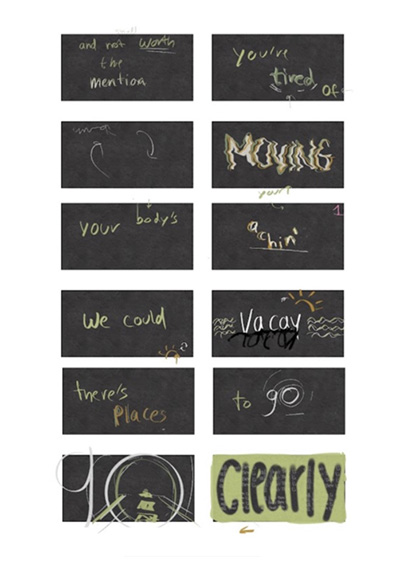 and not worth
the
mention
you're
tired
of
MOVING
your
your body's
achin'
1
We could
Vacay
there's
places
to go
go
Clearly